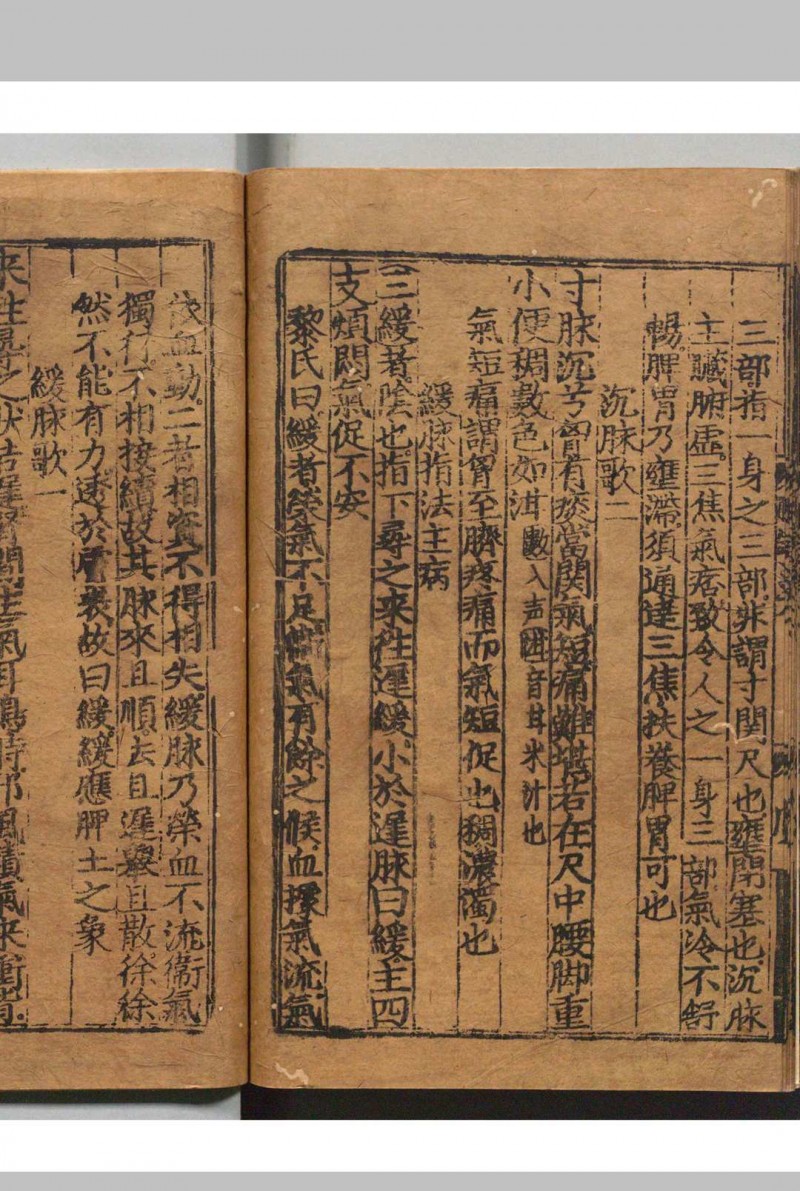 三部指一身之三部非謂寸関尺也壅閉塞也沉脉
主臟腑虛三焦氣痞致令人之一身三部氣冷不舒
暢脾胃乃壅滯須通達三焦扶養脾胃可也
沉脉歌二
寸脉沉兮胷有痰當関氣短痛難堪若在尺中腰脚重
小便稠數色如泔數入声泔音甘米汁也
氣短痛謂胷至臍疼痛而氣短促也稠濃濁也
緩脉指法主病
三緩者陰也指下尋之来徃遲緩小於遲脉曰緩主四
支煩悶氣促不安
黎氏曰緩者榮氣不足衛氣有餘之候血㩀氣流氣
依血動二者相資不得相失緩脉乃榮血不流衛氣
獨行不相接續故其脉來且順去且遲舉且散徐徐
然不能有力透於膚表故曰緩緩應脾土之象
緩脉歌一
来徃尋之状若遲腎間生氣耳鳴時邪風積氣来衝背